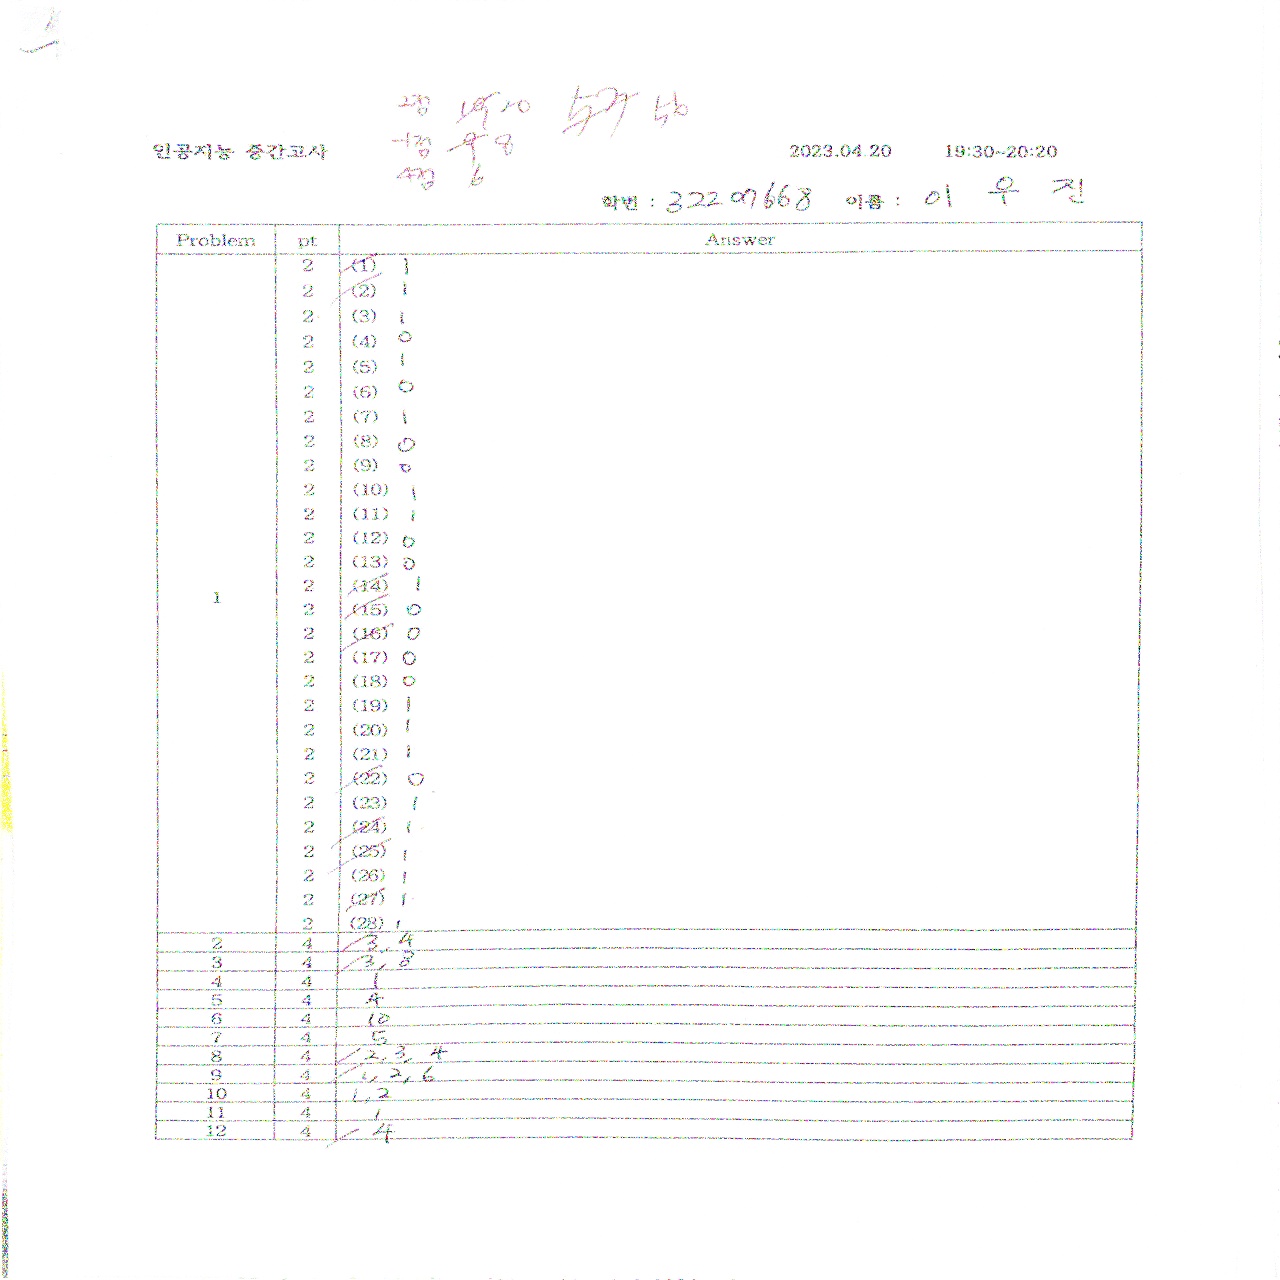 2점 20 56
인공지능 중간고사 1점 8 2023.04.20 19:30~20:20
4점 6
학번 : 32207668 이름 : 이 우 진
Problem pt Answer
1
2 (1) 1
2 (2) 1
2 (3) 1
2 (4) 0
2 (5) 1
2 (6) 0
2 (7) 1
2 (8) 0
2 (9) 0
2 (10) 1
2 (11) 1
2 (12) 0
2 (13) 0
2 (14) 1
2 (15) 0
2 (16) 0
2 (17) 0
2 (18) 0
2 (19) 1
2 (20) 1
2 (21) 1
2 (22) 0
2 (23) 1
2 (24) 1
2 (25) 1
2 (26) 1
2 (27) 1
2 (28) 1
2 4 3, 4
3 4 3, 8
4 4 1
5 4 4
6 4 10
7 4 5
8 4 2, 3, 4
9 4 1, 2, 6
10 4 1, 2
11 4 1
12 4 4